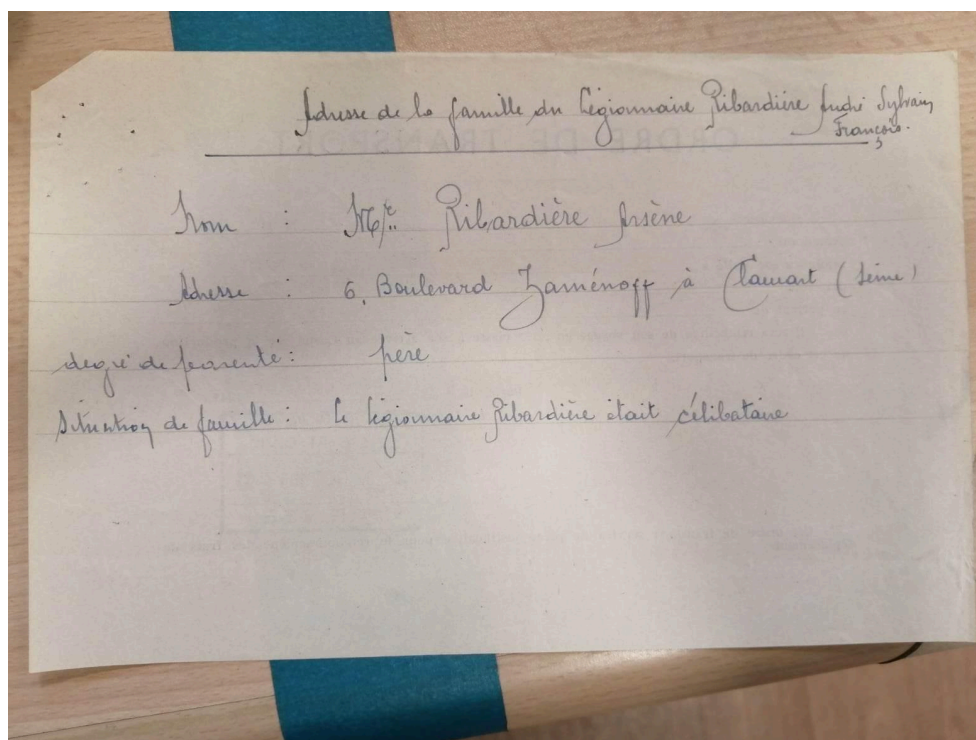 Adresse de la famille du Légionnaire Ribardière André Sylvain
François.
Nom : Mr. Ribardière Arsène
Adresse : 6, Boulevard Zaménoff à Clamart (Seine)
degré de parenté : père
Situation de famille : Le légionnaire Ribardière était célibataire
ORDRE DE TRANSPORT